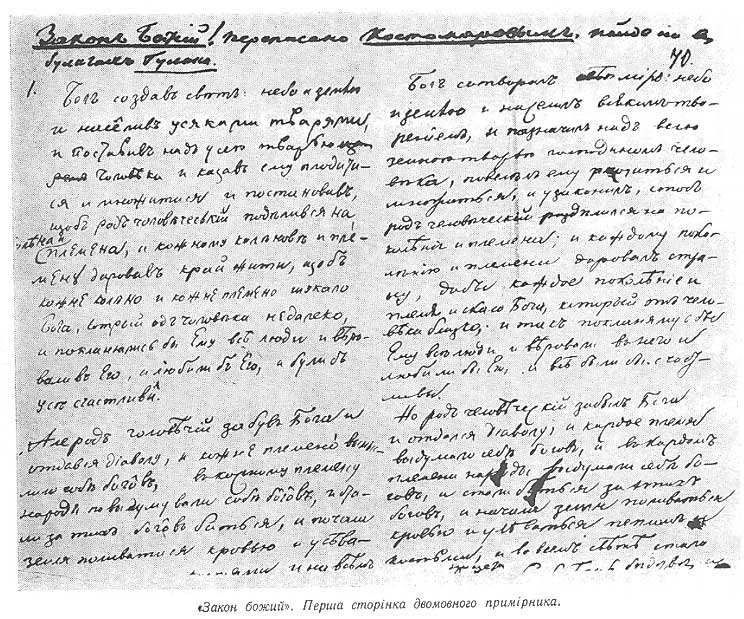 Законъ Божій! переписано Костомаровымъ, найдено въ
бумагахъ Гулака.
70.
1.
Богъ создавъ свѣтъ: небо и землю
и населивъ усякими тварями,
и поставивъ надъ усею тварью
человѣка и казавъ ему плодити-
ся и множитися и постановивъ,
щобъ родъ человѣческій подѣлився на
колѣна и
племена, и кожному колѣновѣ и пле-
мену даровавъ край жити, щобъ
кожне колѣно и кожне племено шукало
Бога, котрый одъ человѣка недалеко,
и поклонялись бы Ему всѣ люди и вѣро-
вали въ Его, и любили бъ Его, и були бъ
усѣ счастливи.
Але родъ человѣчій забувъ Бога и
отдався діаволу, а кожне племено вымы-
слило собѣ богôвъ, и въ кожному племену
народы повыдумували собѣ богôвъ, и ста-
ли за тихъ богôвъ биться, и почала
земля поливатися кровью и усѣва-
и на всѣмъ
Богъ сотворилъ міръ: небо
и землю и населилъ всякими тво-
реніями, и назначилъ надъ всею
земною тварью господиномъ чело-
вѣка, повелѣлъ ему родиться и
множиться, и узаконилъ, чтобъ
родъ человѣческій раздѣлился на по-
колѣнія и племена; и каждому поко-
лѣнію и племени даровалъ стра-
ну, дабы каждое поколѣніе и
племя искало Бога, который отъ чело-
вѣка близко: и пусть поклоняются бы
Ему всѣ люди и вѣровали въ него и
любили бы Его, и всѣ были бы счаст-
ливы.
Но родъ человѣческій забылъ Бога
и отдался діаволу, и каждое племя
выдумало себѣ боговъ, и въ каждомъ
племени народы выдумали себѣ бо-
говъ, и стали биться за этихъ
боговъ, и начала земля поливаться
кровью и усѣваться пепломъ и
костьми, и во всемъ свѣтѣ стало
«Закон божий». Перша сторінка двомовного примірника.